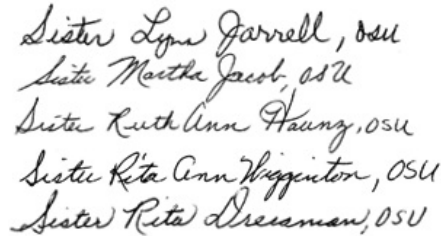 Sister Lynn Jarrell, OSU
Sister Martha Jacob, OSU
Sister Ruth Ann Haunz, OSU
Sister Rita Ann Wigginton, OSU
Sister Rita Dressman, OSU